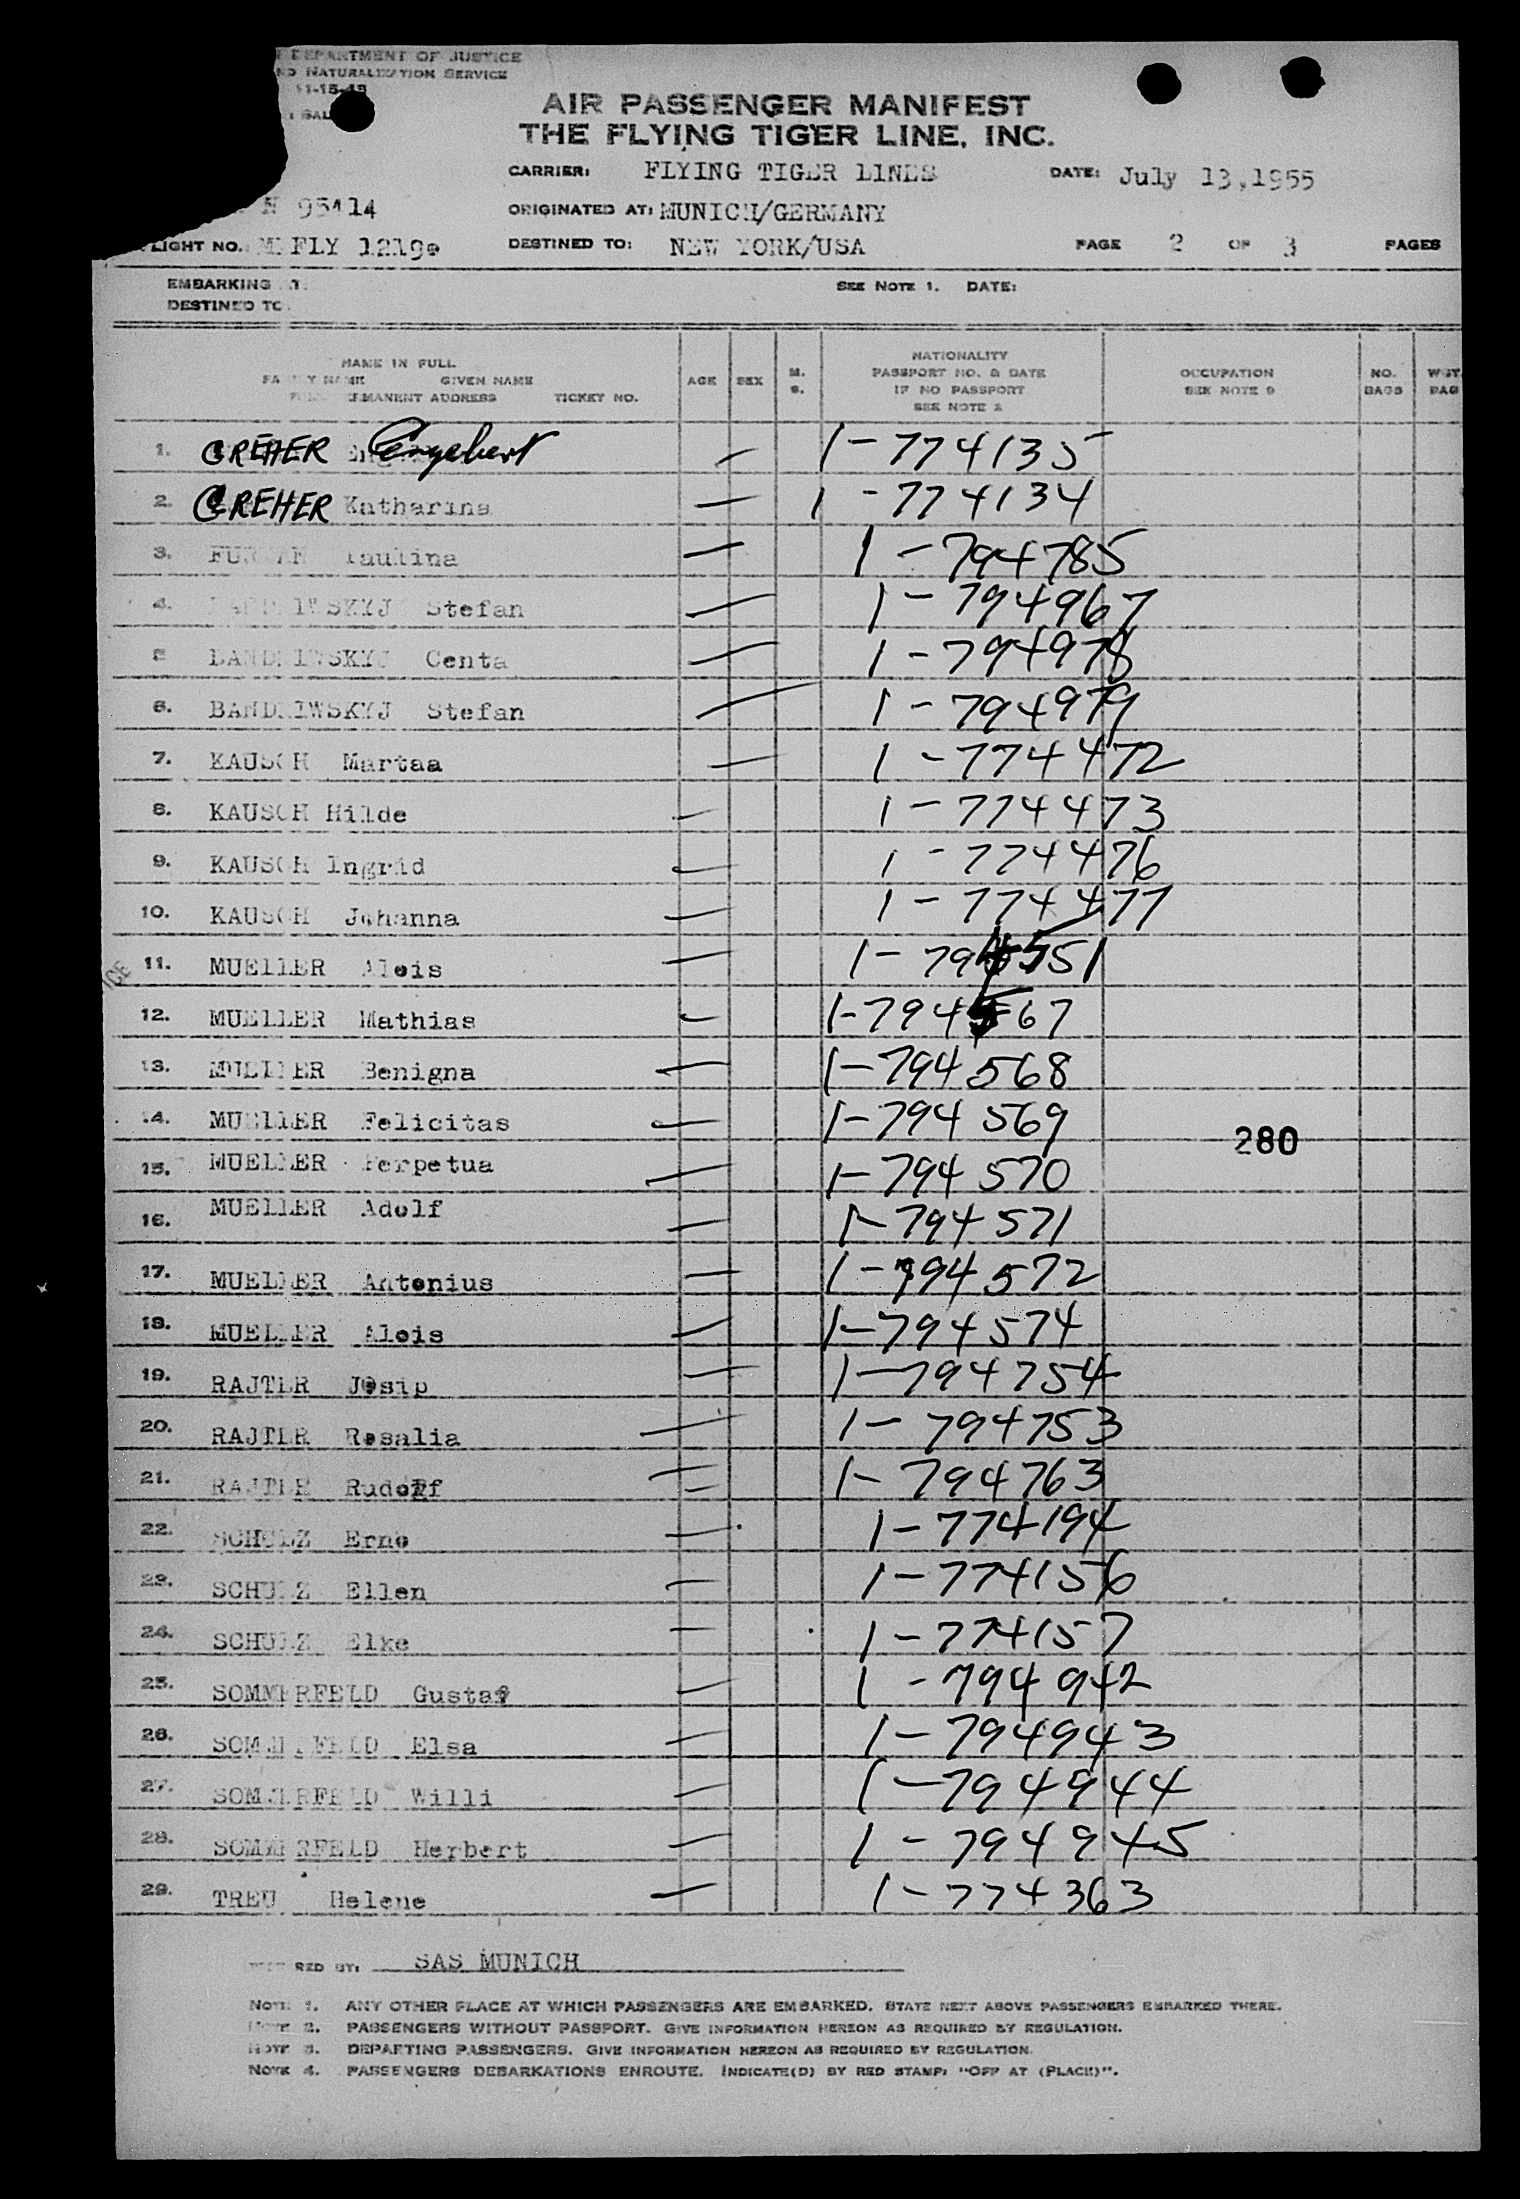 DEPARTMENT OF JUSTICE
NATURALIZATION SERVICE
11-15-48
AIR PASSENGER MANIFEST
THE FLYING TIGER LINE, INC.
CARRIER: FLYING TIGER LINES DATE: July 13,1955
N 95414 ORIGINATED AT: MUNICH/GERMANY
FLIGHT NO. FLY 1219 DESTINED TO: NEW YORK/USA PAGE 2 OF 3 PAGES
EMBARKING SEE NOTE 1. DATE:
DESTINED TO
NAME IN FULL
FAMILY NAME GIVEN NAME
PERMANENT ADDRESS TICKET NO.
AGE SEX M. S.
NATIONALITY
PASSPORT NO. & DATE
IF NO PASSPORT
SEE NOTE 2
OCCUPATION
SEE NOTE 9
NO. BAGS
WGT. BAG
1. CREHER Engebert 1-774135
2. CREHER Katharina 1-774134
3. Paulina 1-794785
4. Stefan 1-794967
5 Centa 1-794978
6. BANDRIWSKYJ Stefan 1-794979
7. KAUSCH Martaa 1-774472
8. KAUSCH Hilde 1-774473
9. KAUSCH Ingrid 1-774476
10. KAUSCH Johanna 1-774477
11. MUELLER Alois 1-794551
12. MUELLER Mathias 1-794567
13. MUELLER Benigna 1-794568
14. MUELLER Felicitas 1-794569
280
15. MUELLER Perpetua 1-794570
16. MUELLER Adolf 1-794571
17. MUELLER Antonius 1-794572
18. MUELLER Alois 1-794574
19. RAJTER Josip 1-794754
20. RAJTER Rosalia 1-794753
21. RAJTER Rudolf 1-794763
22. SCHULZ Erno 1-774194
23. SCHULZ Ellen 1-774156
24. SCHULZ Elke 1-774157
25. SOMMERFELD Gustav 1-794942
26. SOMMERFELD Elsa 1-794943
27. SOMMERFELD Willi 1-794944
28. SOMMERFELD Herbert 1-794945
29. TREU Helene 1-774363
RED BY: SAS MUNICH
NOTE 1. ANY OTHER PLACE AT WHICH PASSENGERS ARE EMBARKED. STATE NEXT ABOVE PASSENGERS EMBARKED THERE.
NOTE 2. PASSENGERS WITHOUT PASSPORT. GIVE INFORMATION HEREON AS REQUIRED BY REGULATION.
NOTE 3. DEPARTING PASSENGERS. GIVE INFORMATION HEREON AS REQUIRED BY REGULATION.
NOTE 4. PASSENGERS DEBARKATIONS ENROUTE. INDICATE(D) BY RED STAMP: "OFF AT (PLACE)".